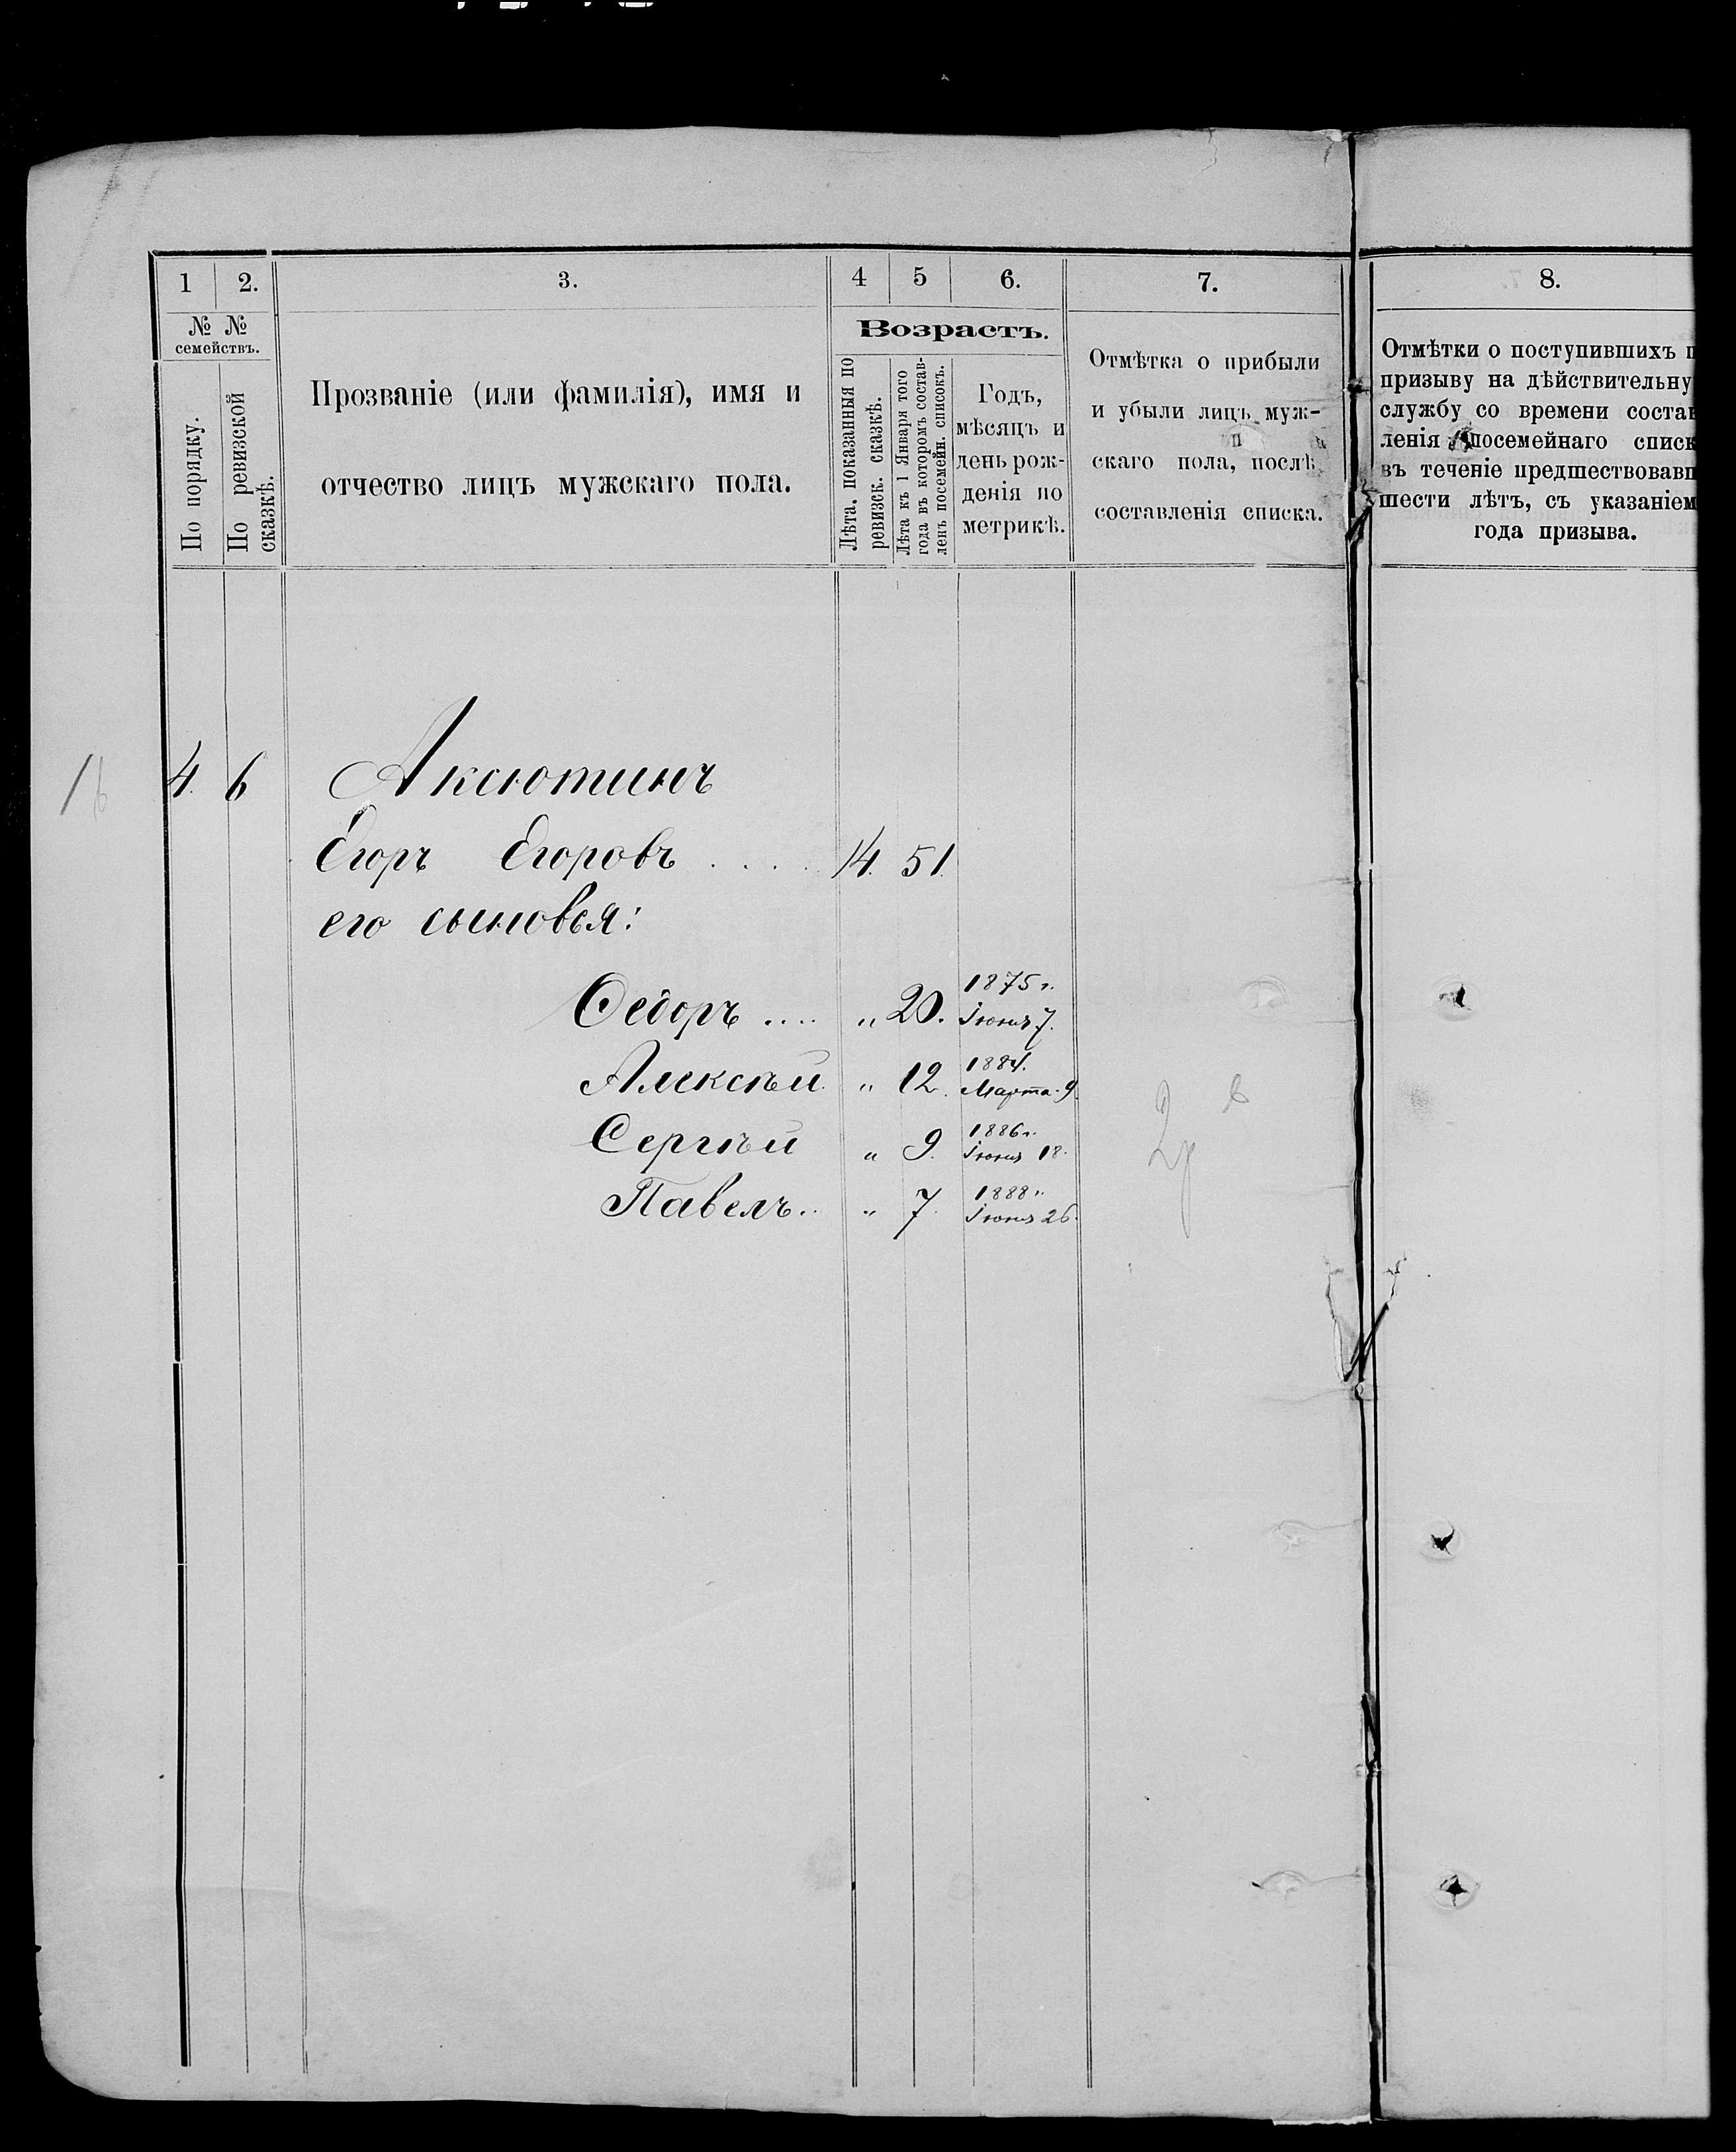 1
2.
3.
4
5
6.
7.
8.
№ №
семействъ.
По порядку.
По ревизской
сказкѣ.
Прозваніе (или фамилія), имя и
отчество лицъ мужскаго пола.
Возрастъ.
Лѣта, показанныя по
ревизск. сказкѣ.
Лѣта къ 1 Января того
года въ которомъ состав-
ленъ посемейн. списокъ.
Годъ,
мѣсяцъ и
день рож-
денія по
метрикѣ.
Отмѣтка о прибыли
и убыли лицъ муж-
скаго пола, послѣ
составленія списка.
Отмѣтки о поступившихъ п
призыву на дѣйствительну
службу со времени состав
ленія посемейнаго списк
въ теченіе предшествовавш
шести лѣтъ, съ указаніем
года призыва.
16
4. 6 Аксютинъ
Егоръ Егоровъ .... 14. 51.
его сыновья:
Ѳедоръ .... „ 20. 1875 г.
Іюня 7.
Алексѣй. „ 12. 1884.
Марта 9.
Сергѣй „ 9. 1886 г.
Іюня 18.
Павелъ.. „ 7. 1888 г.
Іюня 26.